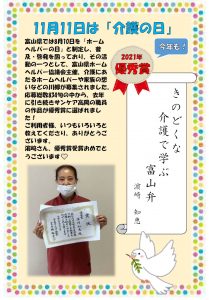 11月11日は「介護の日」
富山県では8月10日を「ホーム
ヘルパーの日」と制定し、普
及・啓発を図っており、その活
動の一つとして、富山県ホーム
ヘルパー協議会主催、介護にあ
たるホームヘルパーや家族の想
いなどの川柳が募集されました。
応募総数834句の中から、去年
に引き続きサンケア高岡の職員
の作品が優秀賞に選ばれまし
た！
ご利用者様、いつもいろいろと
教えてくださり、ありがとうご
ざいます。
濵﨑さん、優秀賞受賞おめでと
うございます♡
今年も！
2021年
優秀賞
きのどくな
介護で学ぶ
富山弁
濵﨑 知恵